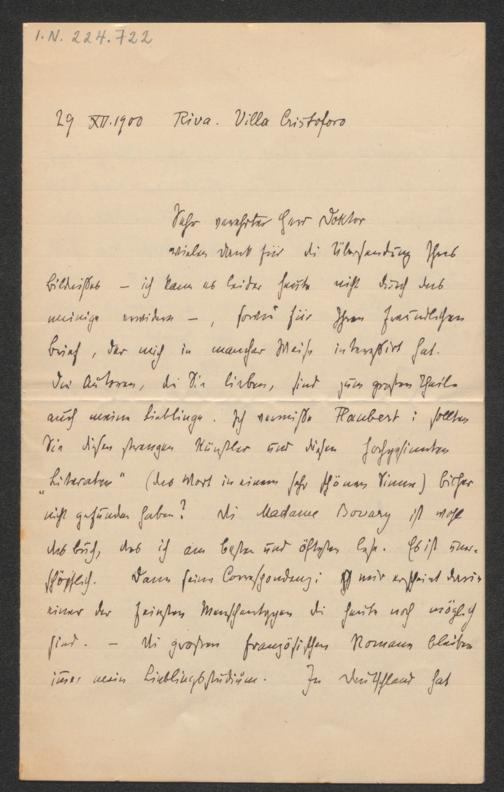 I. N. 224.722
29 XII. 1900 Riva. Villa Cristoforo
Sehr verehrter Herr Doktor
vielen Dank für die Übersendung Ihres
Bildnisses – ich kann es leider heute nicht durch das
meinige erwidern –, sowie für Ihren freundlichen
Brief, der mich in mancher Weise interessirt hat.
Die Autoren, die Sie lieben, sind zum großen Theile
auch meine Lieblinge. Ich vermisse Flaubert: sollten
Sie diesen strengen Künstler und diesen hochgesinnten
„Literaten" (das Wort in einem sehr schönen Sinne) bisher
nicht gefunden haben? Die Madame Bovary ist wohl
das Buch, das ich am besten und öftesten las. Es ist uner-
schöpflich. Dann seine Correspondenz: mir erscheint darin
einer der feinsten Menschentypen die heute noch möglich
sind. – Die großen französischen Romane bleiben
immer mein Lieblingsstudium. In Deutschland hat